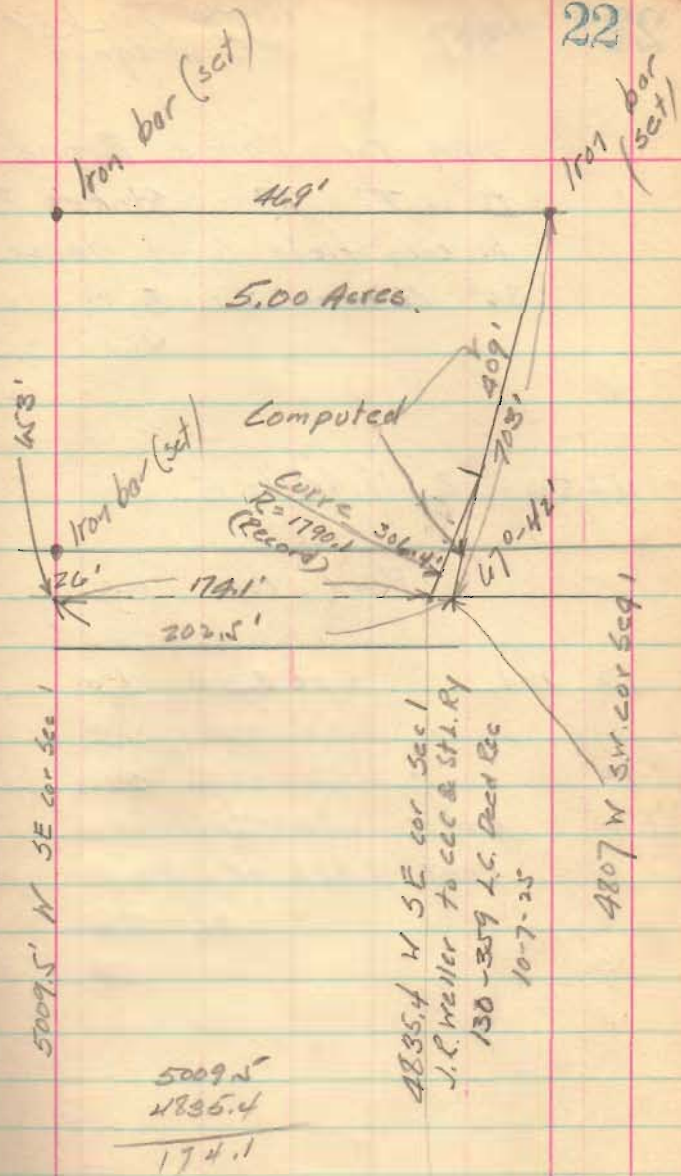 22
Iron bar (set)
Iron bar (set)
469'
5.00 Acres.
409'
703'
653'
Computed
Iron bar (set)
Curve
R=1790.1
(Record)
306.4'
67°-42'
26'
174.1'
202.5'
5009.5' W SE cor Sec 1
4835.4 W SE cor Sec 1
J.R. Weller to CCC & St.L. Ry
130-359 L.C. Deed Rec
10-7-25
4807 W S.W. cor Sec 1
5009.5
4835.4
174.1